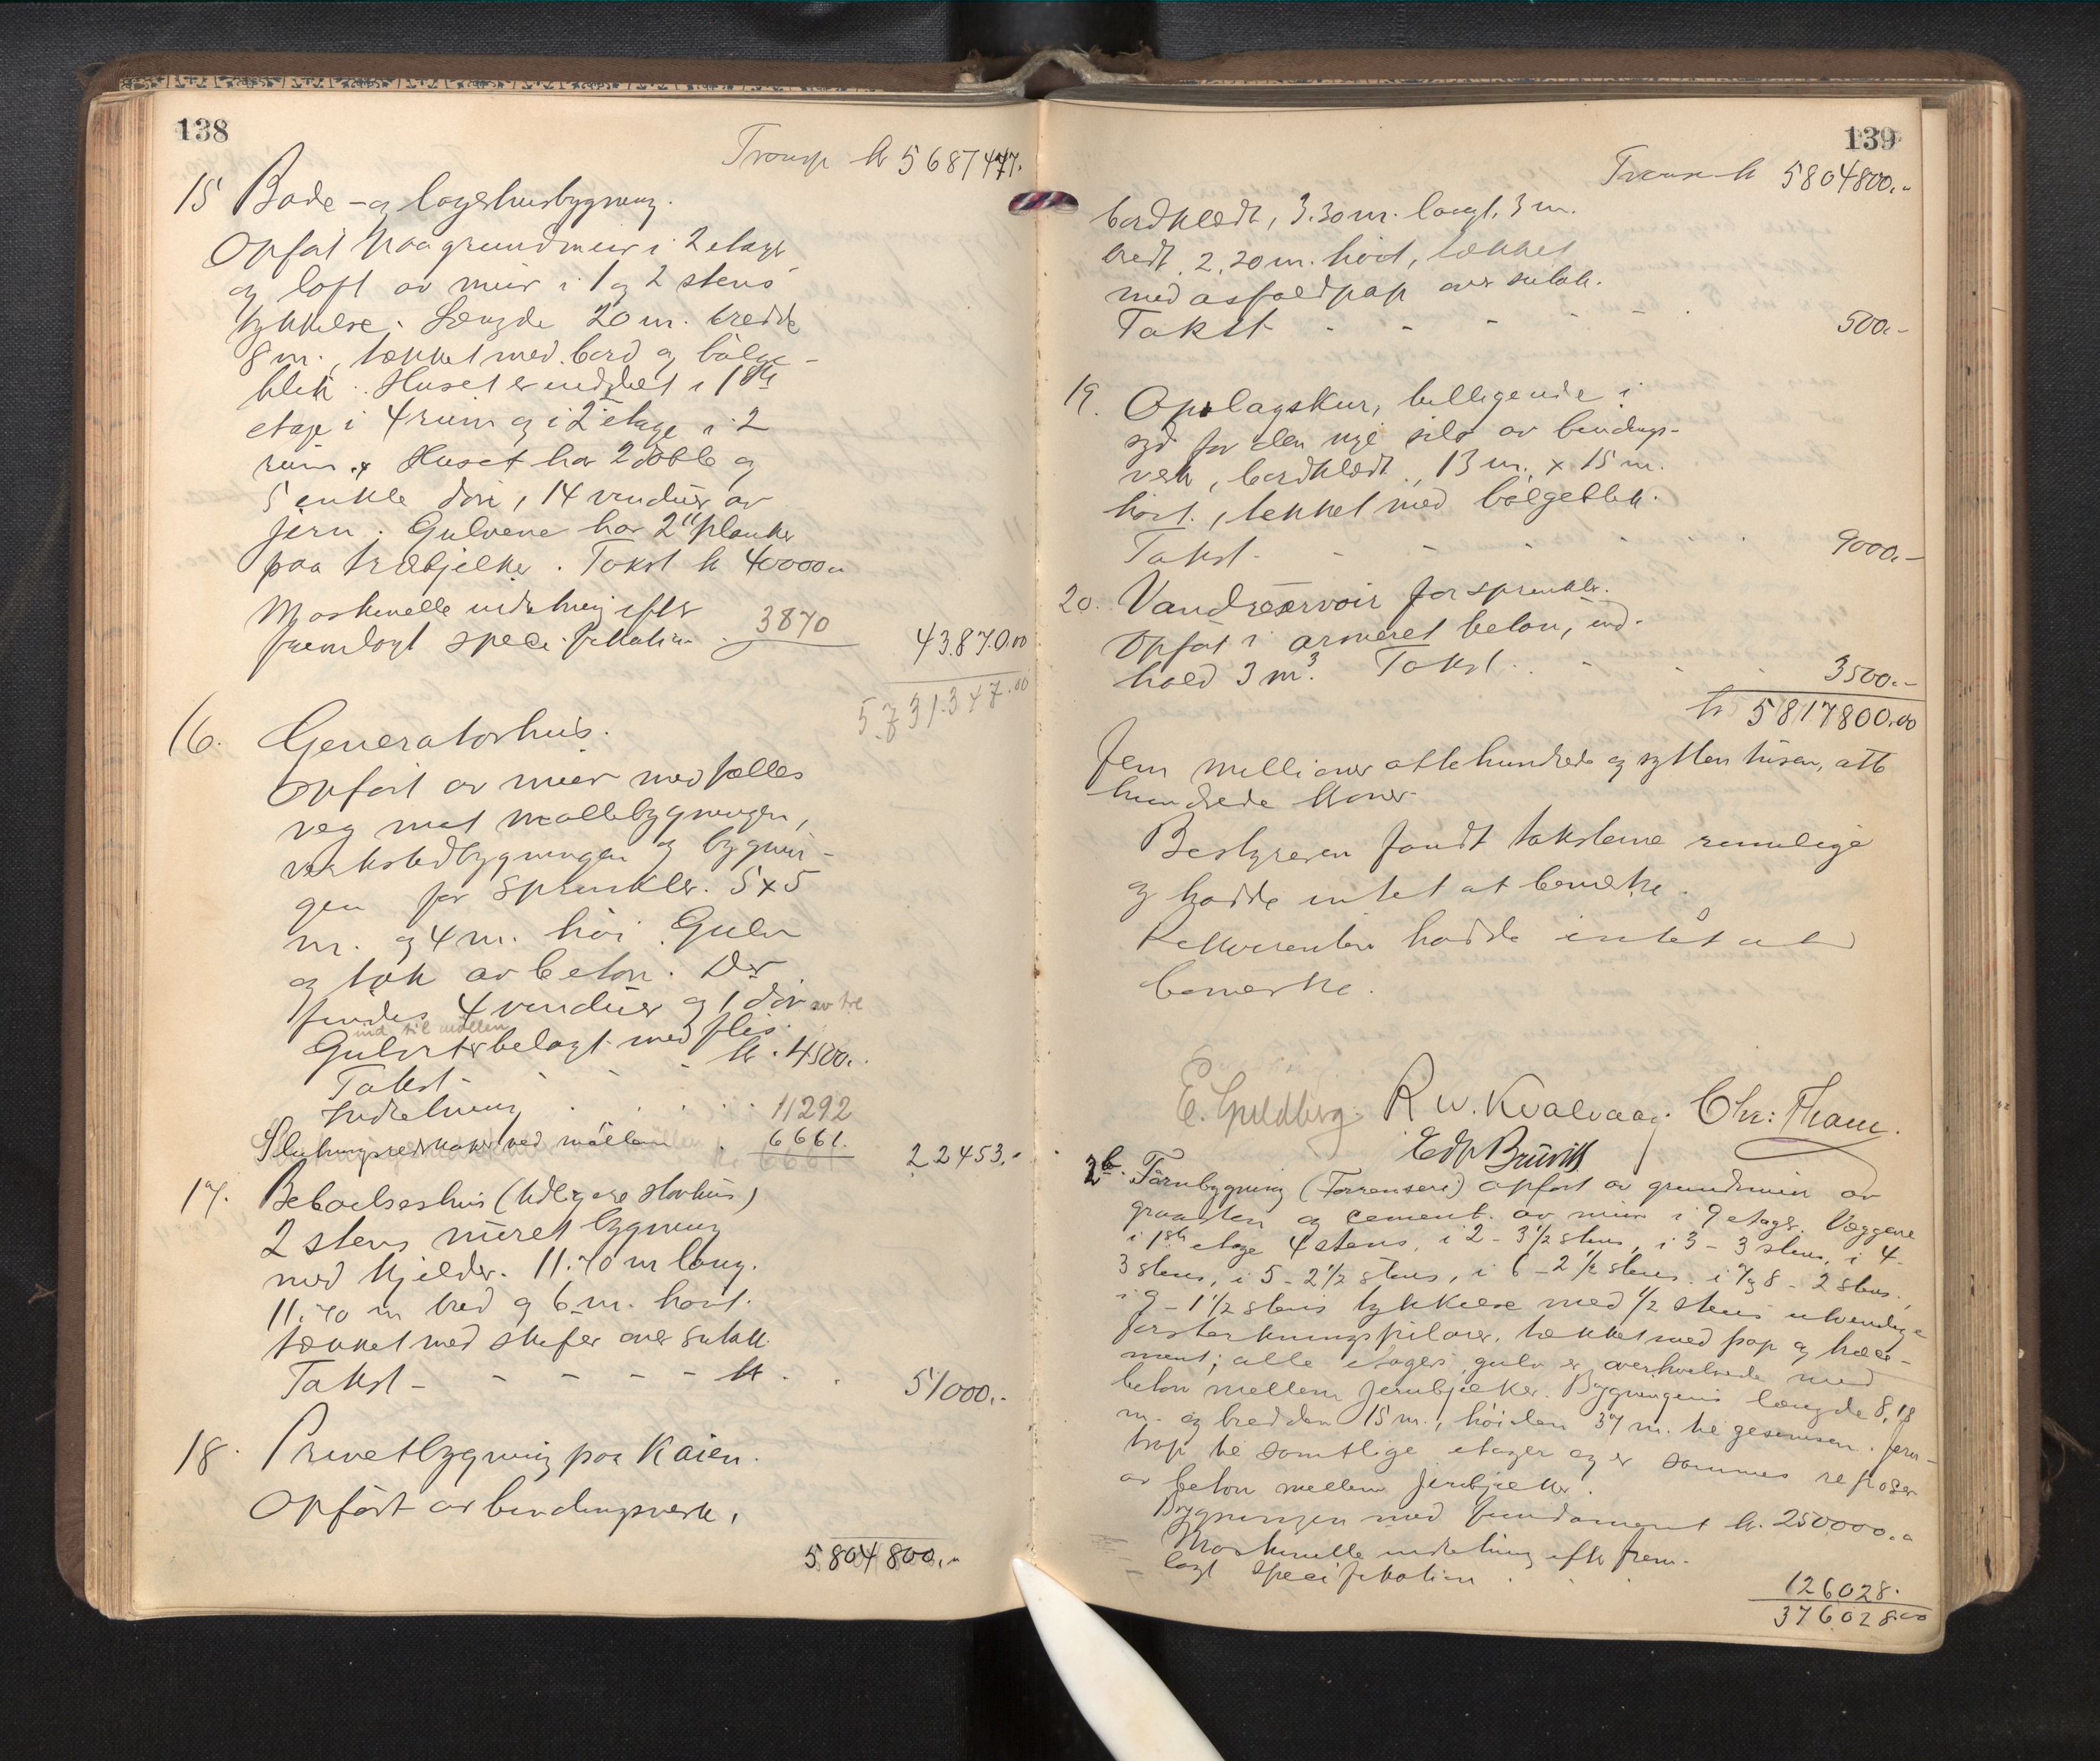 138
Transp kr 5687477.
15 Bode- og lagerhusbygning.
Opført paa grundmur i 2 etager
og loft av mur i 1 og 2 stens
tykkelse. Længde 20 m. bredde
8 m., tækket med bord og bølge-
blik. Huset er inddelt i 1ste
etage i 4 rum og i 2 etage i 2
rum. Huset har 2 doble og
5 enkle dører, 14 vinduer av
jern. Gulvene har 2" planker
paa træbjelker. Takst kr 40000.-
Maskinelle indretning efter
fremlagt specifikation . 3870
43870.00
5731347.00
16. Generatorhus.
Opført av mur med fælles
veg mot møllebygningen,
verkstedbygningen og bygnin-
gen for sprinkler. 5x5
m. og 4 m. høi. Gulv
og tak av beton. Der
findes 4 vinduer og 1 dør av tre
ind til møllen
Gulvet er belagt med flis.
Takst - - - kr. 4500.
Indretning . . . . 11292
Slukningsredskaper ved møllen . 6661.
22453.-
17. Beboelseshus (tidligere
2 stens muret bygning
med kjelder. 11.70 m lang.
11.70 m bred og 6 m. høit.
tækket med skifer over sutak.
Takst - - - - - kr. . 51000.-
18. Privetbygning paa Kaien.
Opført av bindingsverk,
5804800.-
139
Transp kr 5804800.-
bordklædt, 3.30 m. langt, 3 m.
bredt, 2.20 m. høit, tækket
med asfaldpap over sutak.
Takst - - - - - 500.-
19. Oplagskur, beliggende i
syd for den nye silo av bindings-
verk, bordklædt, 13 m. x 15 m.
høit, tækket med bølgeblik.
Takst - - - - - 9000.-
20. Vandreservoir for sprinkler.
Opført i armeret beton, ind-
hold 3 m³. Takst . - - - 3500.-
kr 5817800.00
Fem millioner otte hundrede og sytten tusen, otte
hundrede kroner
Bestyreren fandt taksterne rimelige
og hadde intet at bemerke.
Rekvirenten hadde intet at
bemerke.
E. Guldberg. R W. Kvalvaag. Chr: Tham.
Edv Bruvik
2b. Tårnbygning (Torrenseri) opført av grundmur av
graasten og cement. av mur i 9 etager. Væggene
i 1ste etage 4 stens, i 2 - 3 1/2 stens, i 3 - 3 stens, i 4-
3 stens, i 5 - 2 1/2 stens, i 6 - 2 1/2 stens. i 7 og 8 - 2 stens,
i 9 - 1 1/2 stens tykkelse med 1/2 stens utvendige
forsterkningspilarer, tækket med pap og træce-
ment; alle etagers gulv er overhvelvede med
beton mellem jernbjelker. Bygningens længde 8,18
m. og bredden 15 m., høiden 37 m. til gesimsen. Jern-
trap til samtlige etager og er sammes reposer
av beton mellem jernbjelker.
Bygningen med fundament kr. 250000.-
Maskinelle indretning efter frem-
lagt specifikation . . . 126028.
376028.00